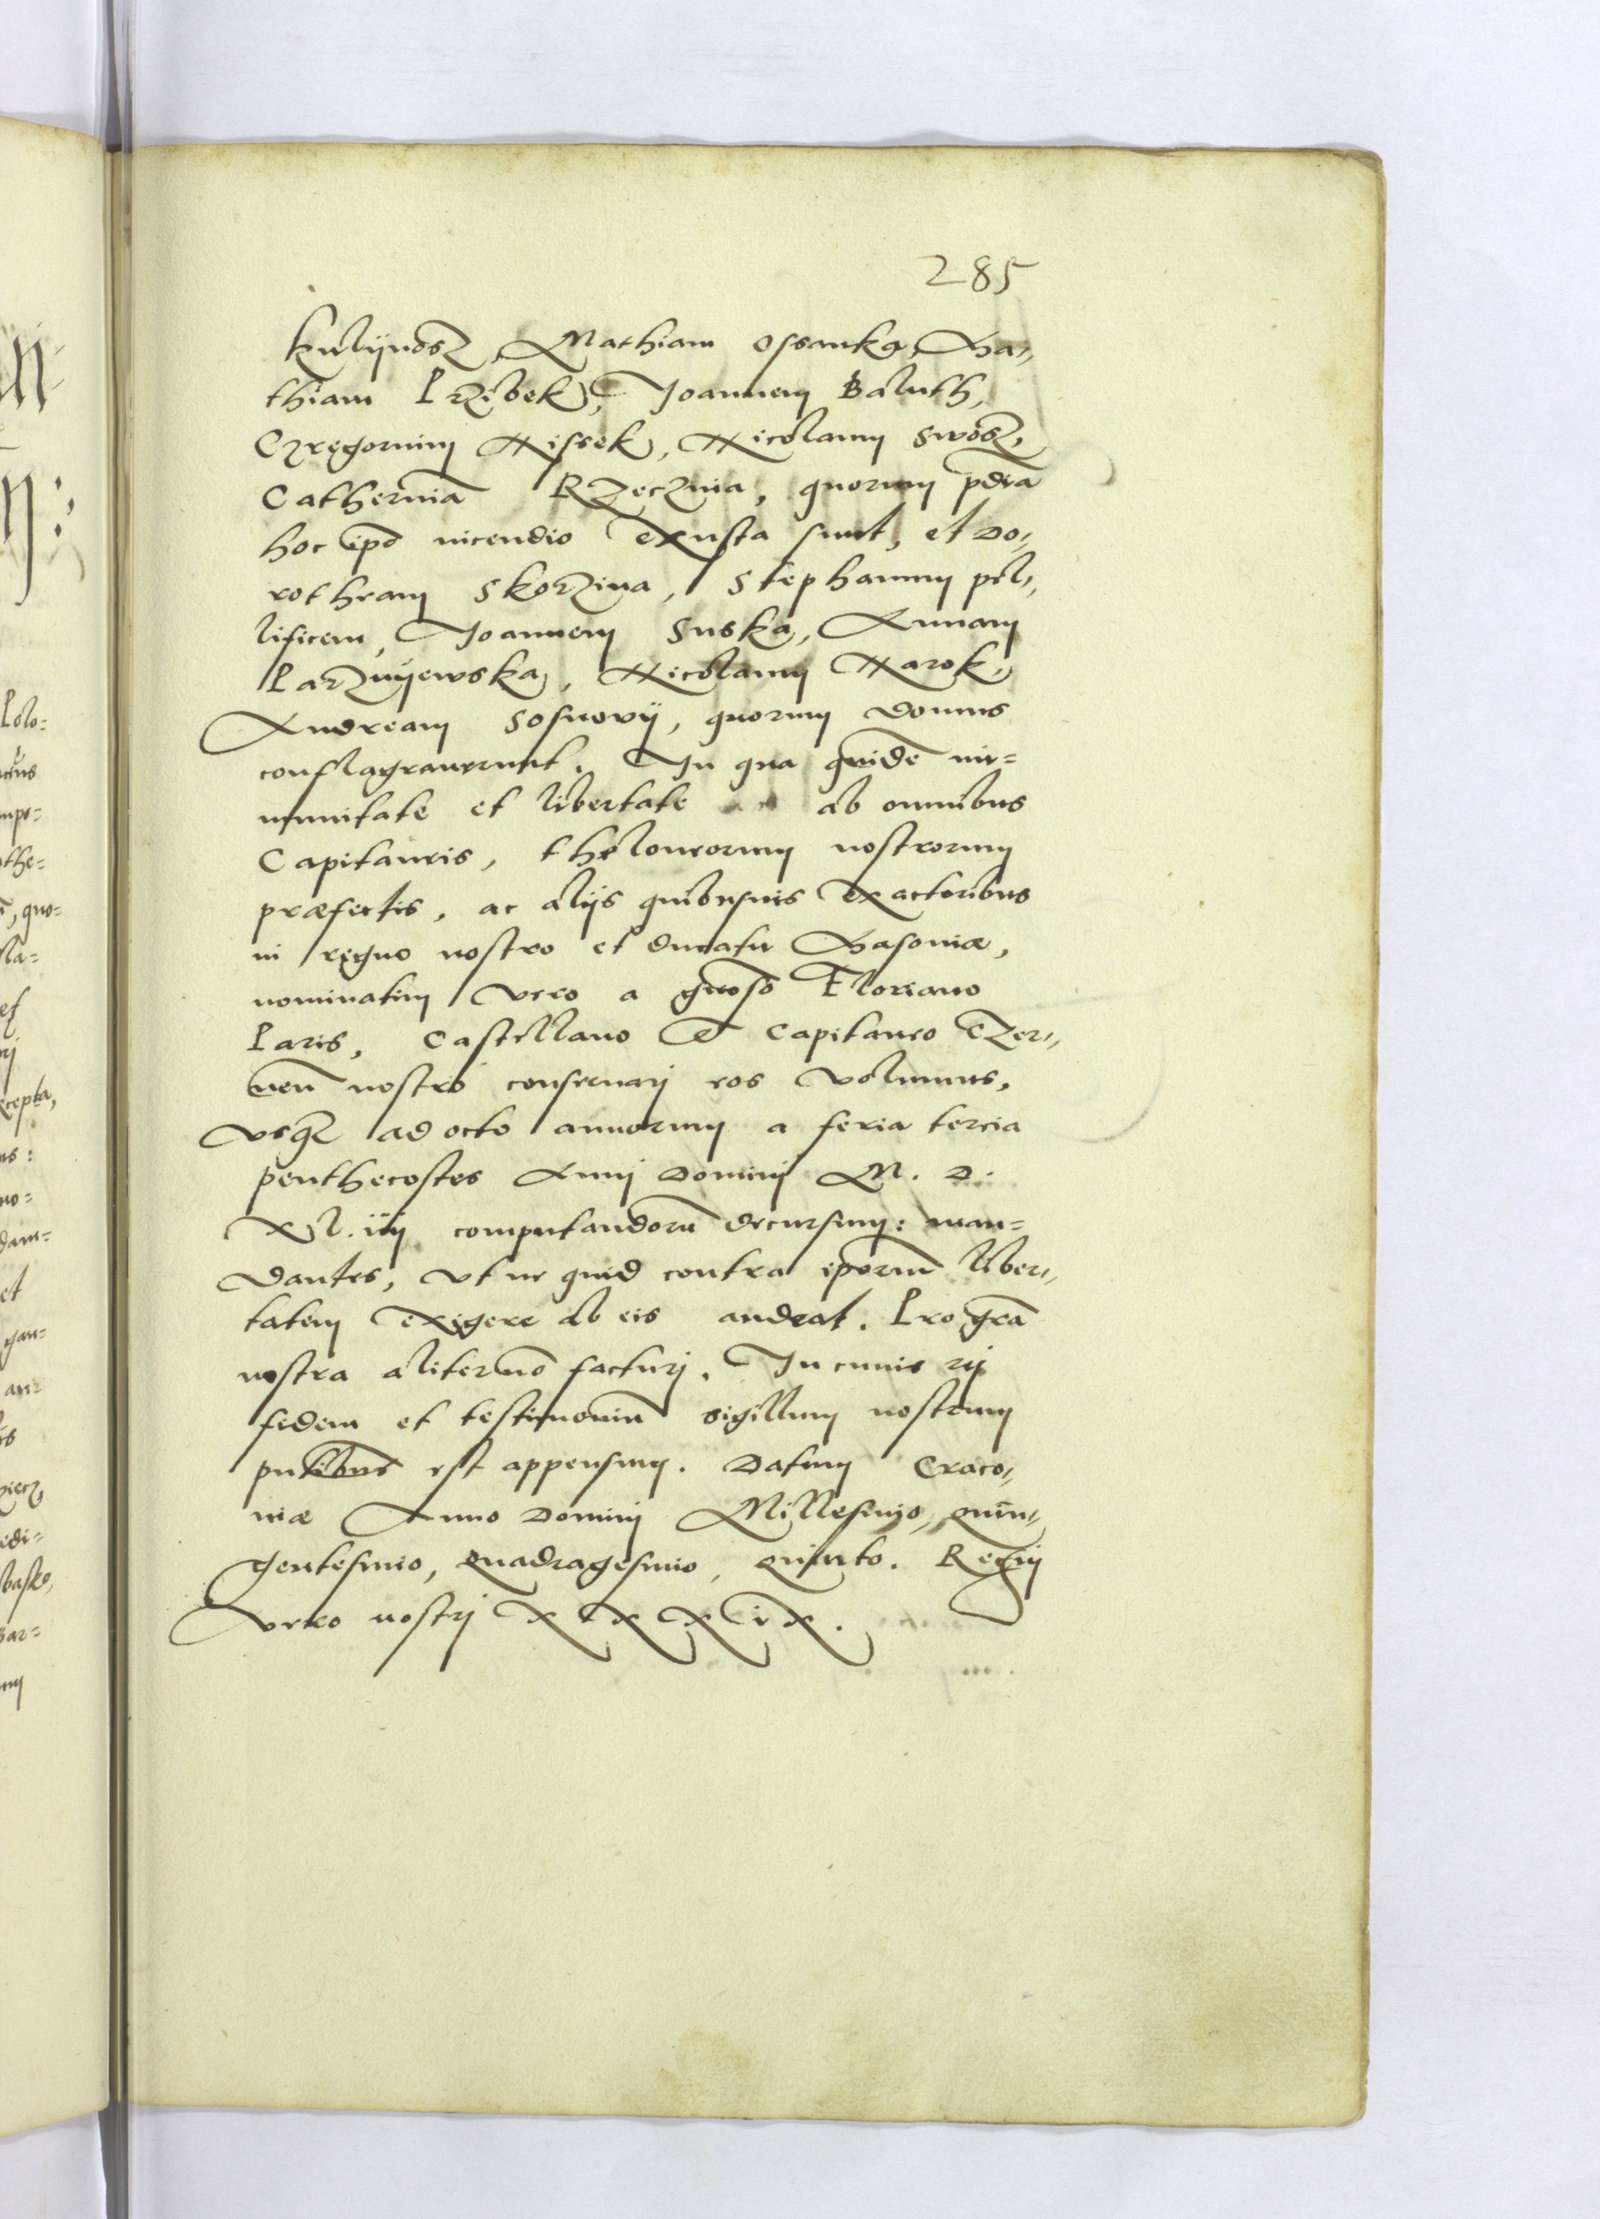 285
kulijnosz, Mathiam Ossanka, Ma-
thiam Przibek, Joannem Baluth,
Czregorium Missek, Nicolaum Swosz,
Catherinā Rzecznia, quorum pdia
hoc ipō incendio exusta sunt, et Do-
rotheam Skorzina, Stephanum pel-
lificem, Joannem Suska, Annam
Parznijewska, Nicolaum Marok,
Andream Sosnovij, quorum domus
conflagraverunt. In qua quidē im=
munitate et libertate ab omnibus
Capitaneis, theloneorum nostrorum
præfectis, ac alijs quibusuis exactoribus
in regno nostro et ducatu Masoviæ,
nominatim vero a gnoso Floriano
Paris, Castellano et Capitaneo Czer-
neñ nostro conservarj eos volumus,
vsqz ad octo annorum a feria tercia
penthecostes Annj Dominj M. D.
Xl. iiij computandorū decursum: man=
dantes, vt ne quid contra ipōrum liber-
tatem exigere ab eis audeat. Pro grā
nostra aliter nō facturj. In cuius rej
fidem et testimoniū sigillum nostrum
pntibus est appensum. Datum Craco-
viæ Anno Dominj Millesimo, quin-
gentesimo, quadragesimo, quinto. Regnj
vero nostrj XXXIX.
Polo=
quo=
la=
the=
no=
dam=
et
gan=
cepta,
edi=